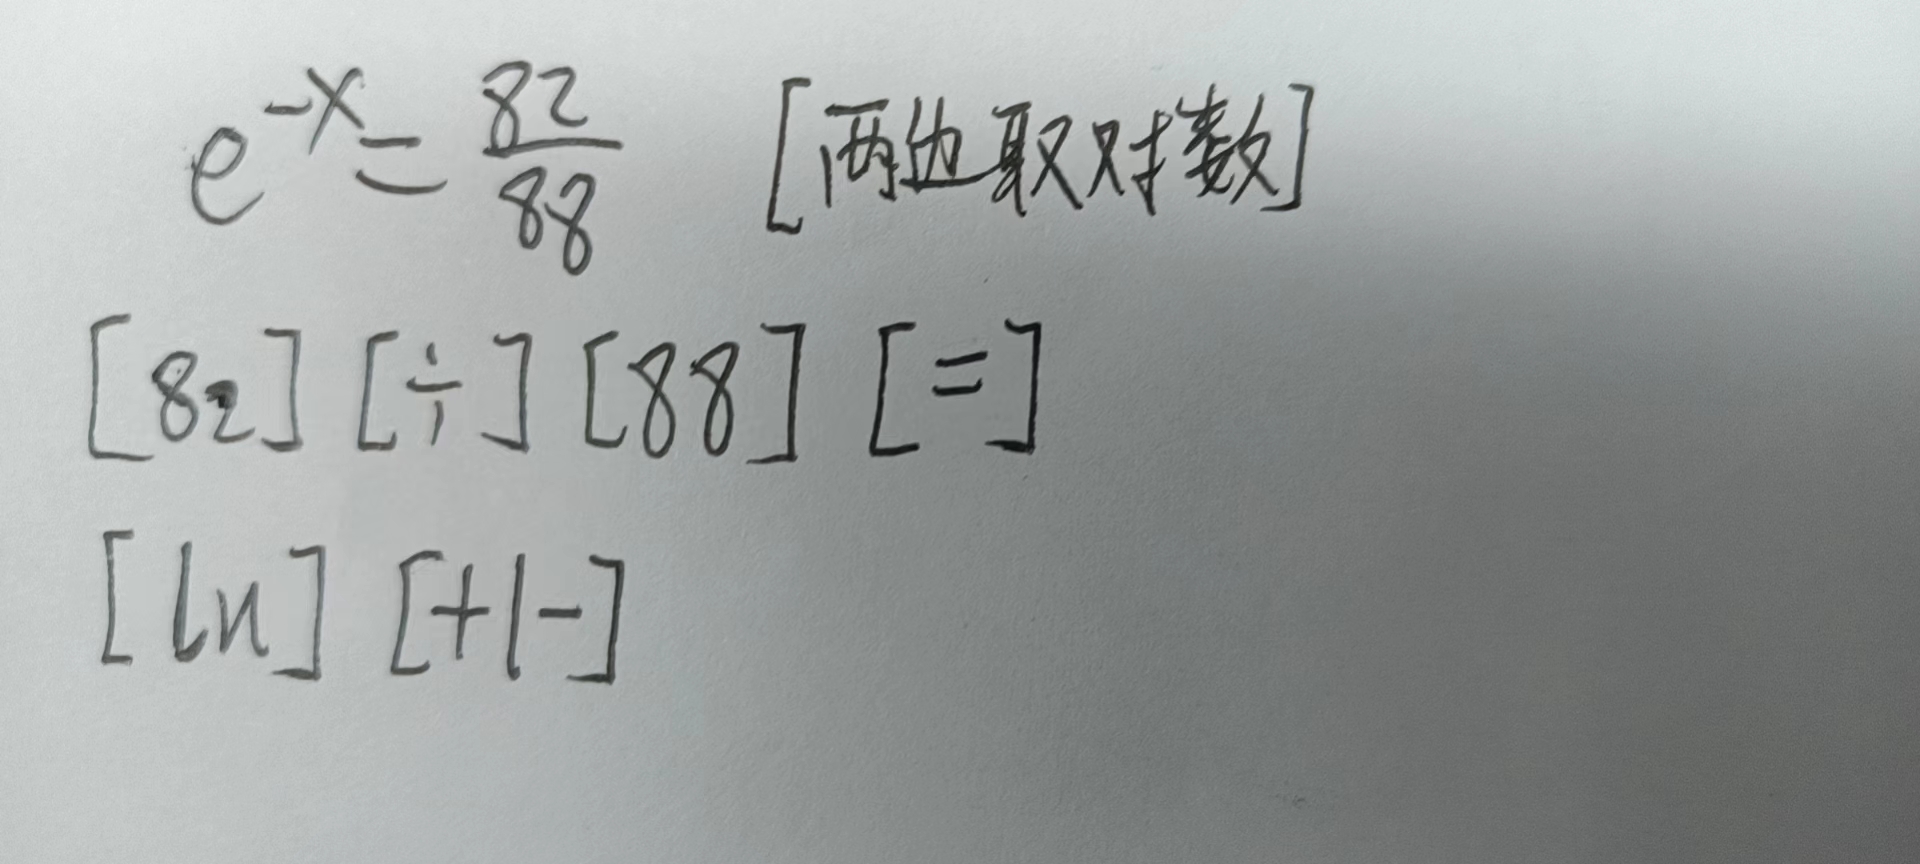 e^-x = 82/88 [两边取对数]
[82] [÷] [88] [=]
[ln] [+|-]